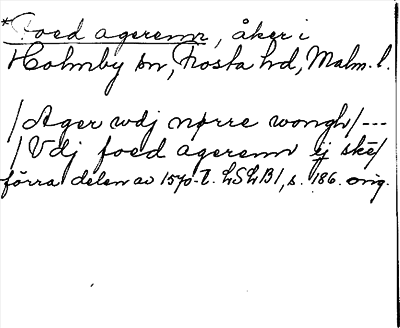 *Foed agerenn, åker i
Holmby sn, Frosta hd, Malm. l.
/Ager wdj nørre wongh/---
/Vdj foed agerenn ej skē/
förra delen av 1570-t. LSLB1, s. 186. orig.